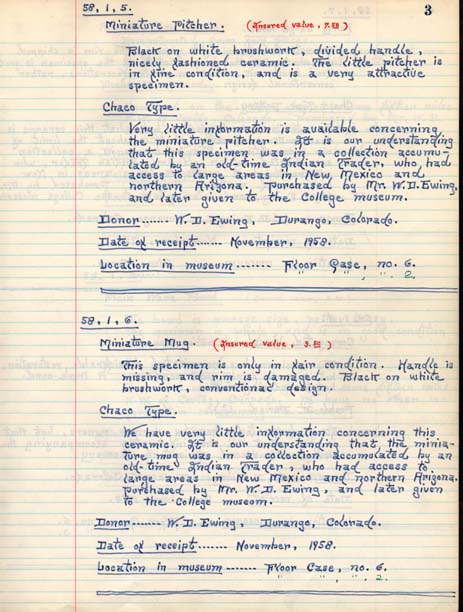 58, 1, 5.
3
Miniature Pitcher. (Insured value, 7.50)
Black on white brushwork, divided handle,
nicely fashioned ceramic. The little pitcher is
in fine condition, and is a very attractive
specimen.
Chaco Type.
Very little information is available concerning
the miniature pitcher. It is our understanding
that this specimen was in a collection accumu-
lated by an old-time Indian Trader, who had
access to large areas in New Mexico and
northern Arizona. Purchased by Mr. W. D. Ewing,
and later given to the College museum.
Donor ------- W. D. Ewing, Durango, Colorado.
Date of receipt ------ November, 1958.
Location in museum ------- Floor Case, no. 6.
" " , " 2.
58, 1, 6.
Miniature Mug. (Insured value, 3.50)
This specimen is only in fair condition. Handle is
missing, and rim is damaged. Black on white
brushwork, conventional design.
Chaco Type.
We have very little information concerning this
ceramic. It is our understanding that the minia-
ture mug was in a collection accumulated by an
old-time Indian Trader, who had access to
large areas in New Mexico and northern Arizona.
Purchased by Mr. W. D. Ewing, and later given
to the College museum.
Donor ------- W. D. Ewing, Durango, Colorado.
Date of receipt ------- November, 1958.
Location in museum ------- Floor Case, no. 6.
" " , " 2.